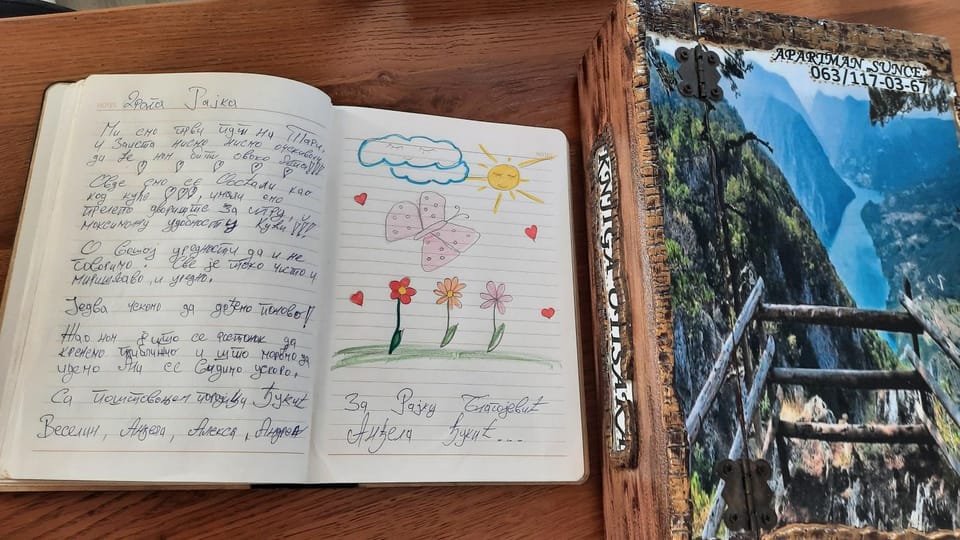 Рајка
Ми смо први пут на Тари,
и заиста нисмо нисмо очекивали
да ће нам бити овако
Овде смо се осећали као
код куће, имали смо
прелепо двориште за игру, и
максималну удобност у кући!!!
О вашој уредности да и не
говоримо. Све је тако чисто и
миришљаво, и уредно.
Једва чекамо да дођемо поново!!
Жао нам је што се растанак да
кренемо приближио и што морамо да
идемо Али се видимо ускоро.
Са поштовањем породица Ђукић
Веселин, Анђела, Алекса, Андреа
За Рајку Благојевић
Анђела Ђукић...
KNJIGA UTISAKA
APARTMAN „SUNCE"
063/117-03-67